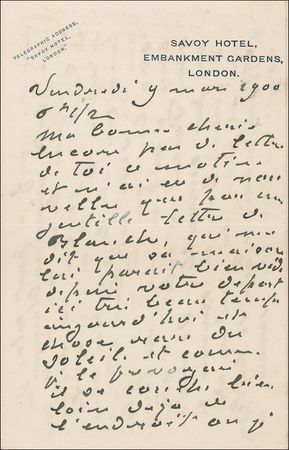 TELEGRAPHIC ADDRESS,
"SAVOY HOTEL,
LONDON."
SAVOY HOTEL,
EMBANKMENT GARDENS,
LONDON.
Vendredi 9 mars 1900
6 h 1/2
Ma bonne cherie
Encore pas de lettre
de toi ce matin
et n'ai eu de nou
velles que par une
gentille lettre de
Blanche, qui me
dit que sa maison
lui parait bien vide
depuis votre depart
ici tres beau temps
aujourd'hui et
chose rare du
soleil et comme
je le prevoyais
il se couche bien
loin deja de
l'endroit ou j'